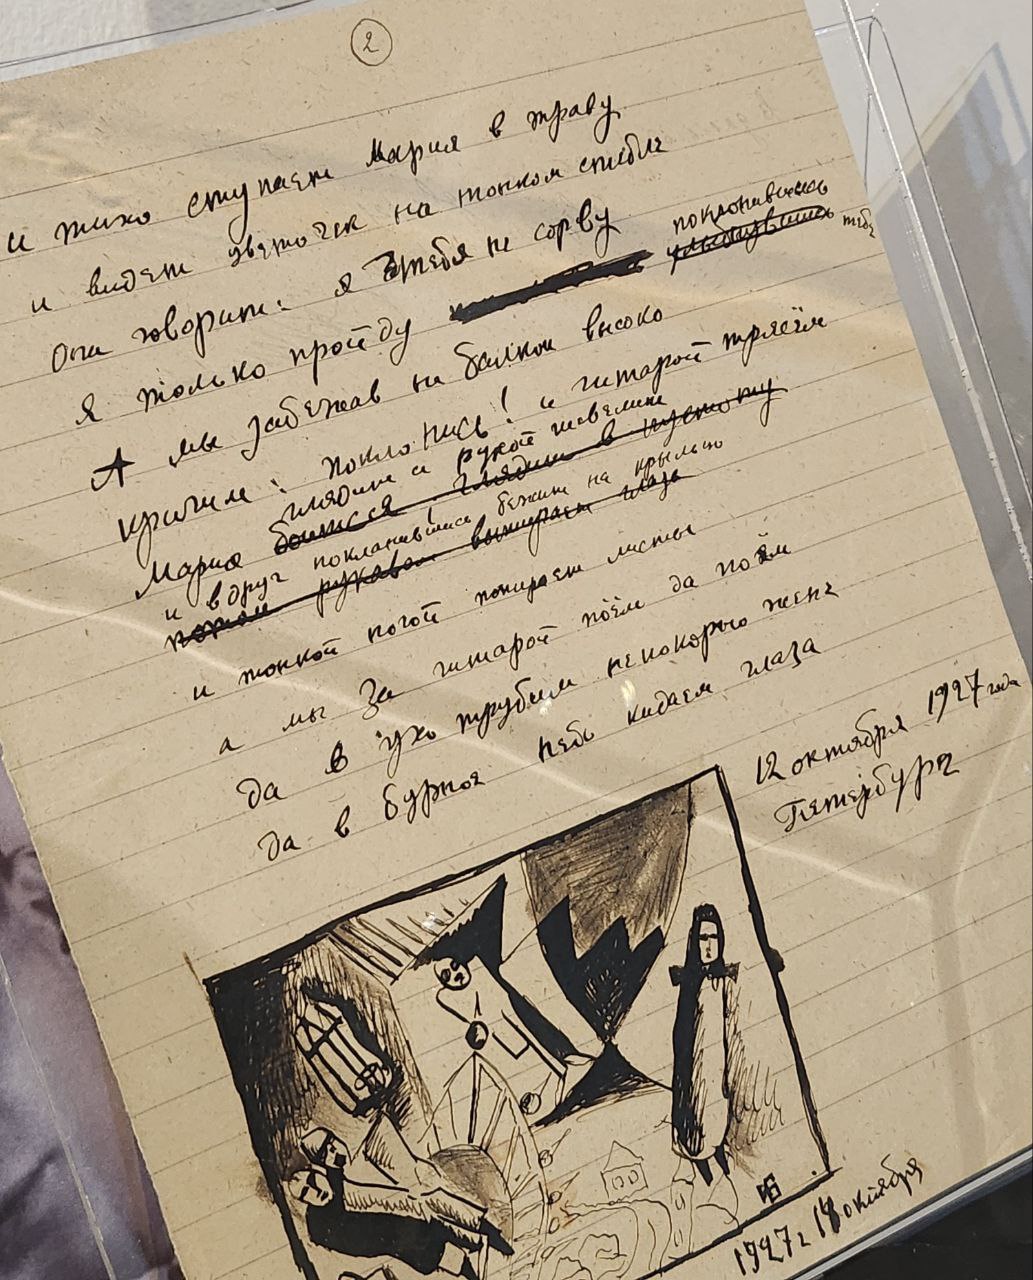 2
и тихо ступает Мария в траву
и видет цветочек на тонком стебле
Она говорит: я тебя не сорву
поклонившись
я только пройду улыбнувшись тебе
А мы забежав на балкон высоко
кричим: поклонись! и гитарой трясём
глядит и рукой шевелит
Мария боится глядит в пустоту
и вдруг поклонившись бежит на крыльцо
потом рукавом вытирает глаза
и тонкой ногой попирает листы
а мы за гитарой поём да поём
да в ухо трубим непокорно жене
да в бурное небо кидаем глаза
12 октября 1927 года
Петербург
1927 г 18 октября